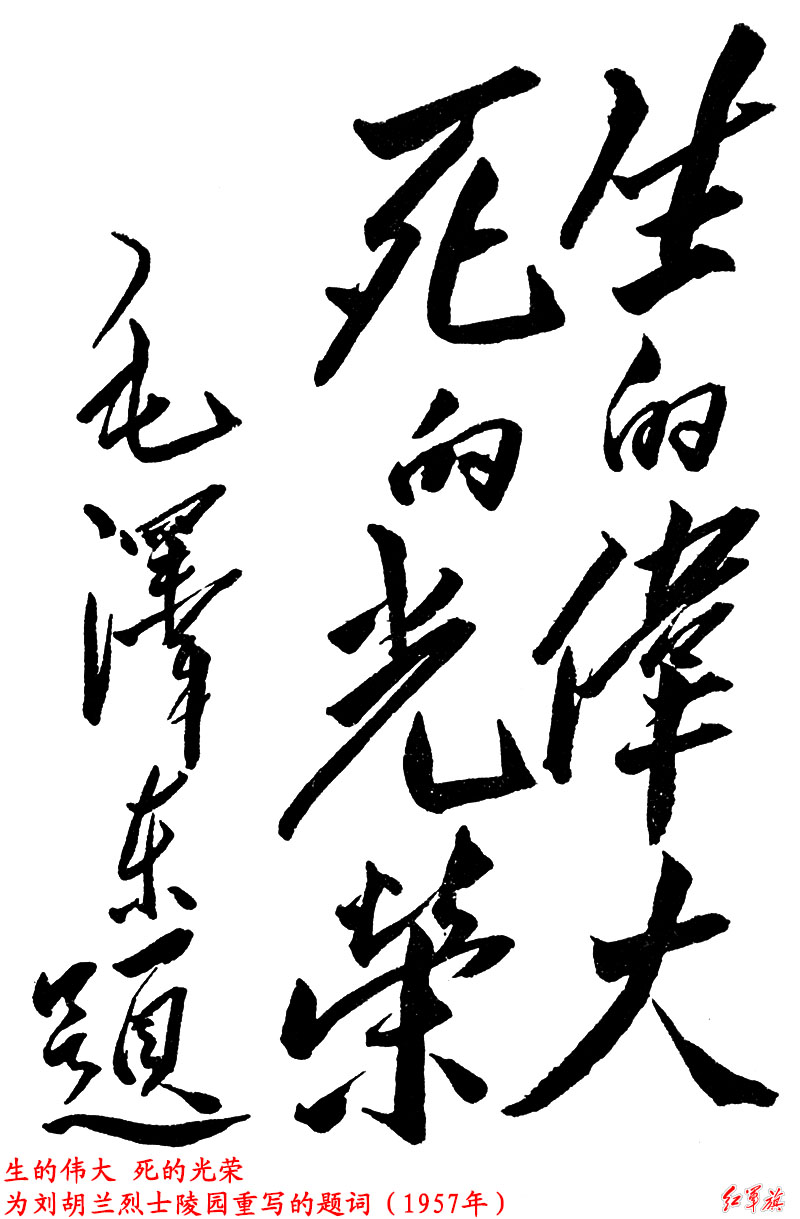 生的偉大
死的光榮
毛澤东題
生的伟大 死的光荣
为刘胡兰烈士陵园重写的题词（1957年）
红军旗